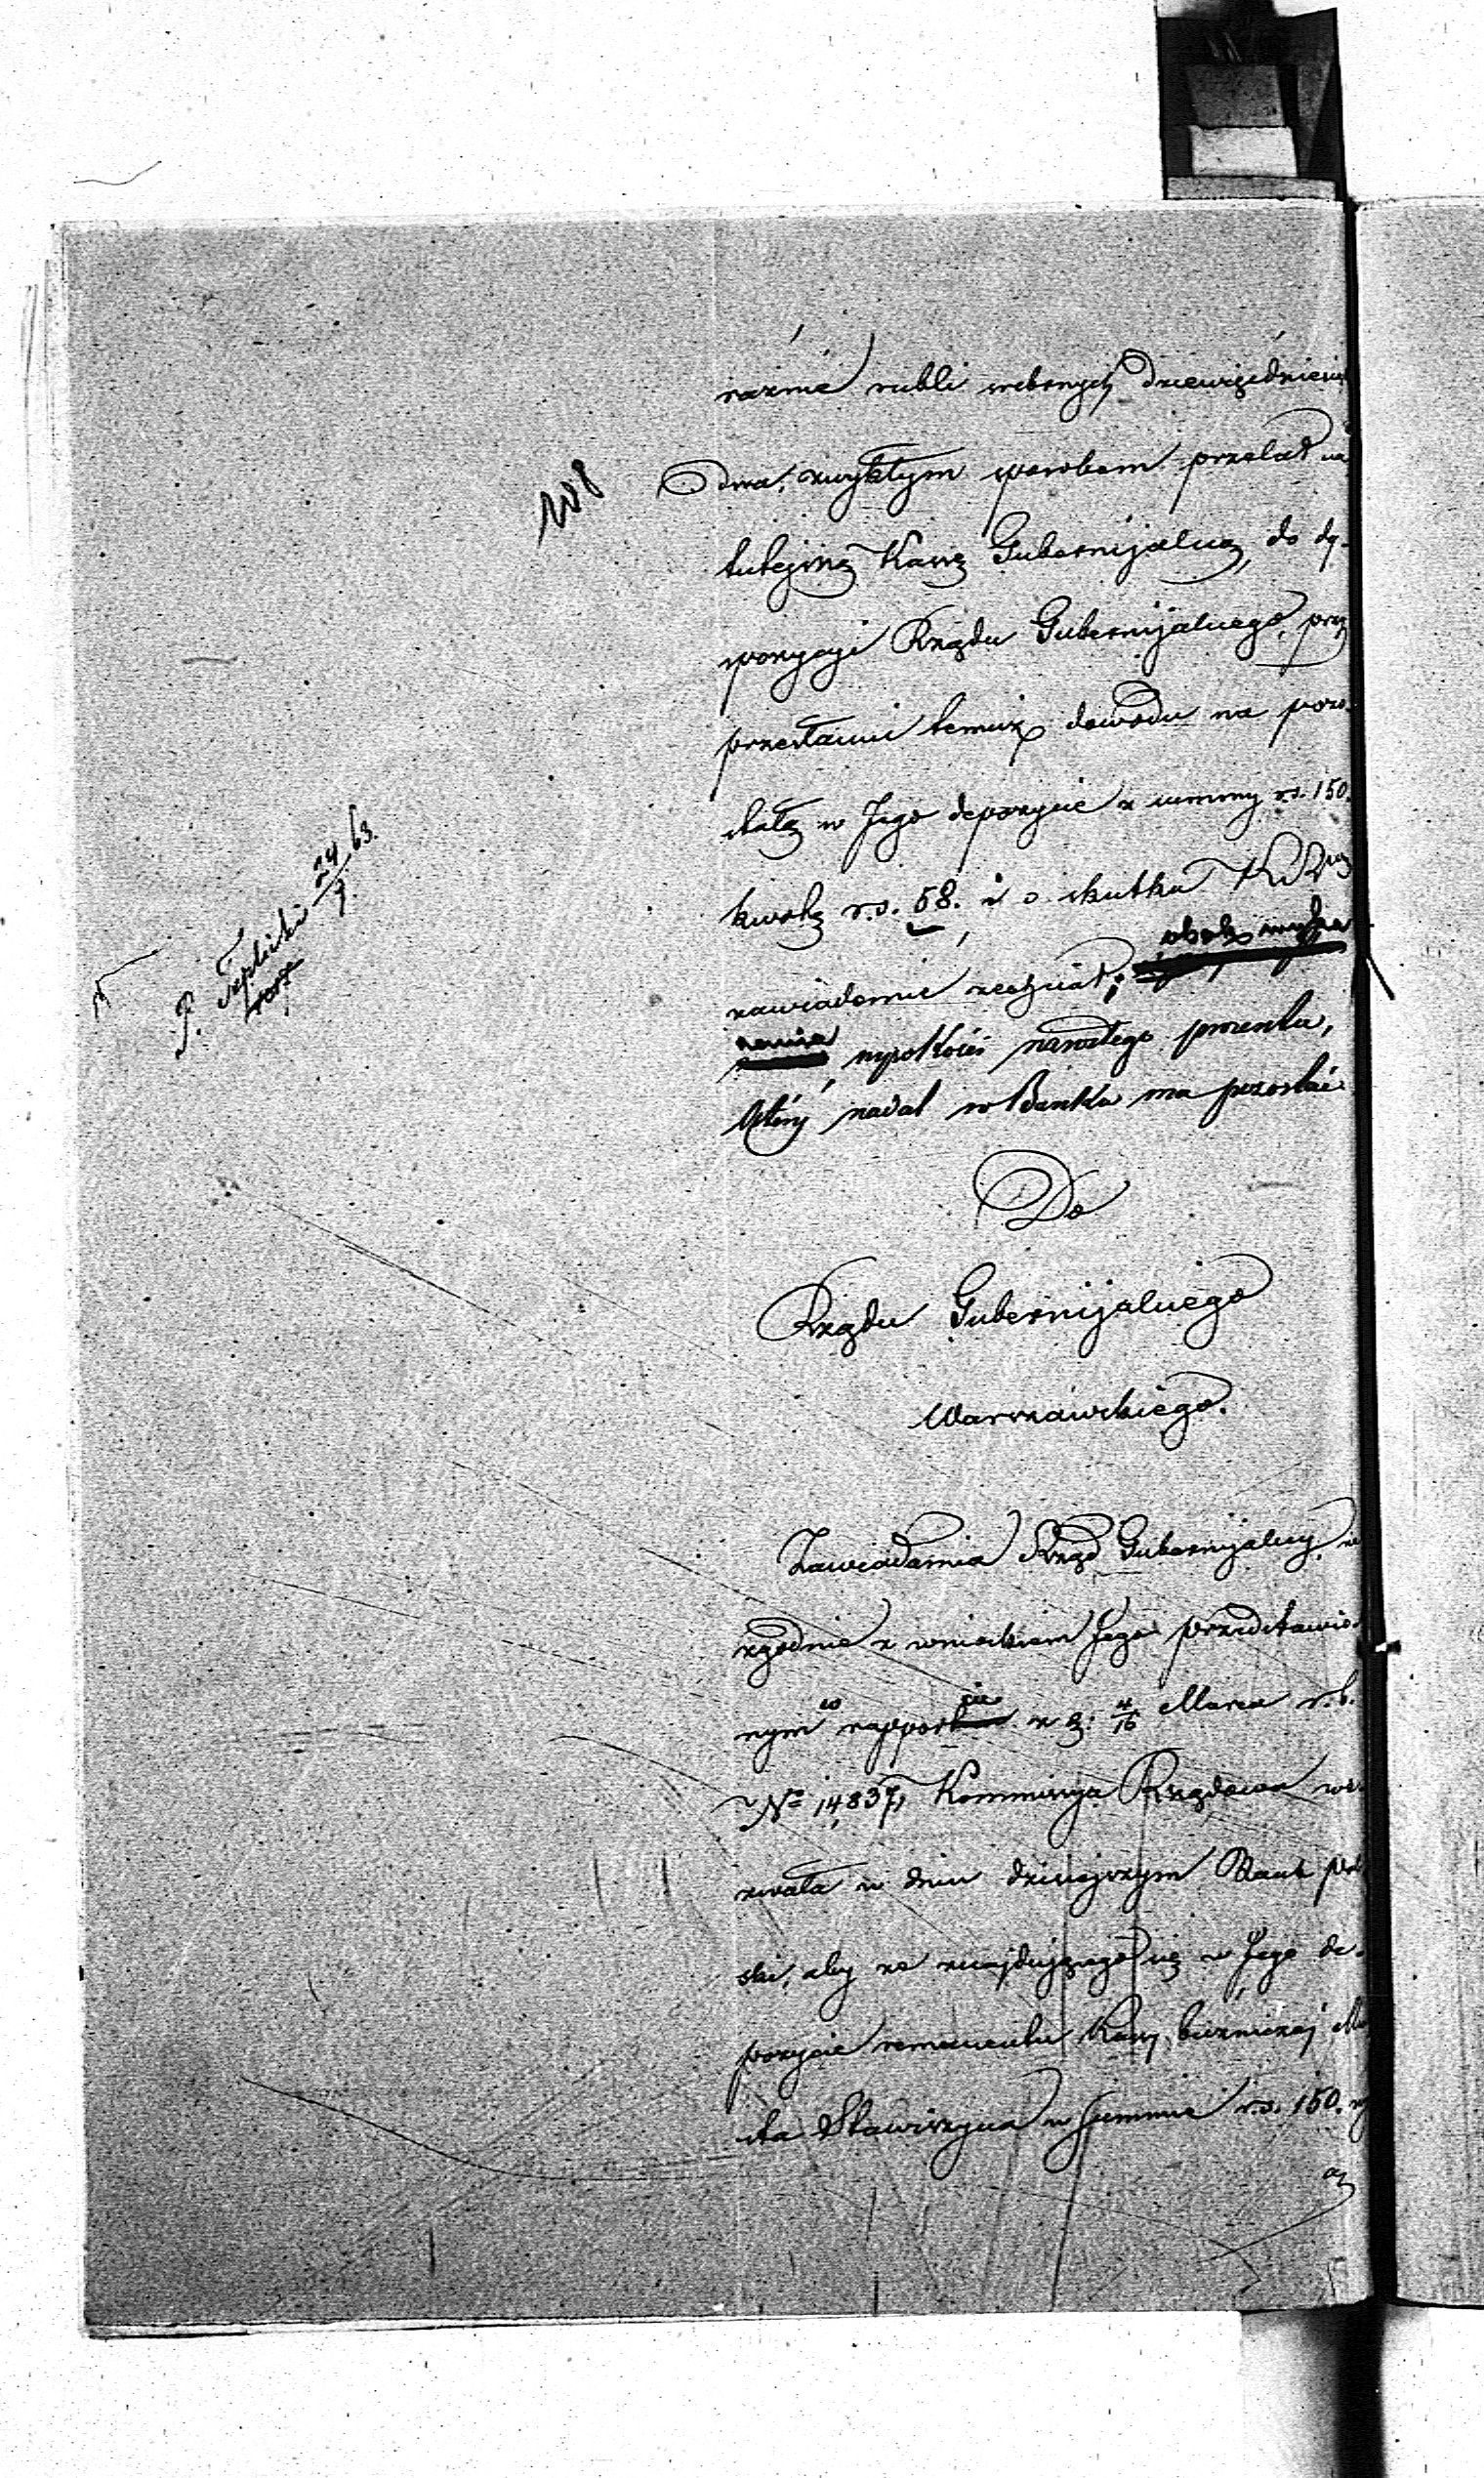 raźnie rubli srebrnych dziewięćdziesiąt
dwa, zwykłym sposobem przelał na
tutejszą Kassę Gubernijalną, do dy-
spozycyi Rządu Gubernijalnego, przy
przesłaniu temuż dowodu na pozo-
stałą w Jego depozycie z summy r.s. 150.
kwotę r.s. 58. i o skutku KR
zawiadomić zechciał; obok wyka
zania wysokości narosłego procentu,
który nadal w Banku ma pozostać
Do
Rządu Gubernijalnego
Warszawskiego.
Zawiadamia Rząd Gubernijalny, iż
zgodnie z wnioskiem Jego przedstawio-
nym w rapporcie z d. 4/16 Marca r.b.
Nº 14,837, Kommissya Rządowa we-
zwała w dniu dzisiejszym Bank Pol
ski, aby ze znajdującego się w Jego de-
pozycie remanentu Kassy bożniczej Mia
sta Stawiszyna w summie r.s. 150.
P. Teplicki 24/3 63.